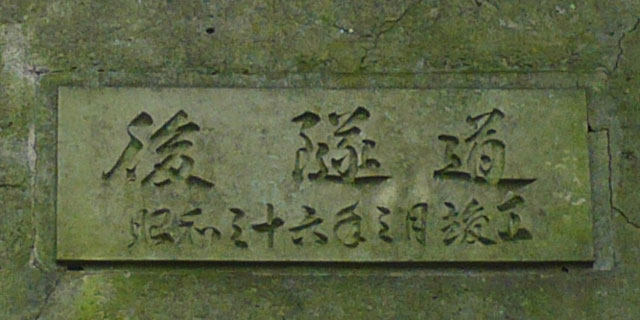 後隧道
昭和三十六年三月竣工